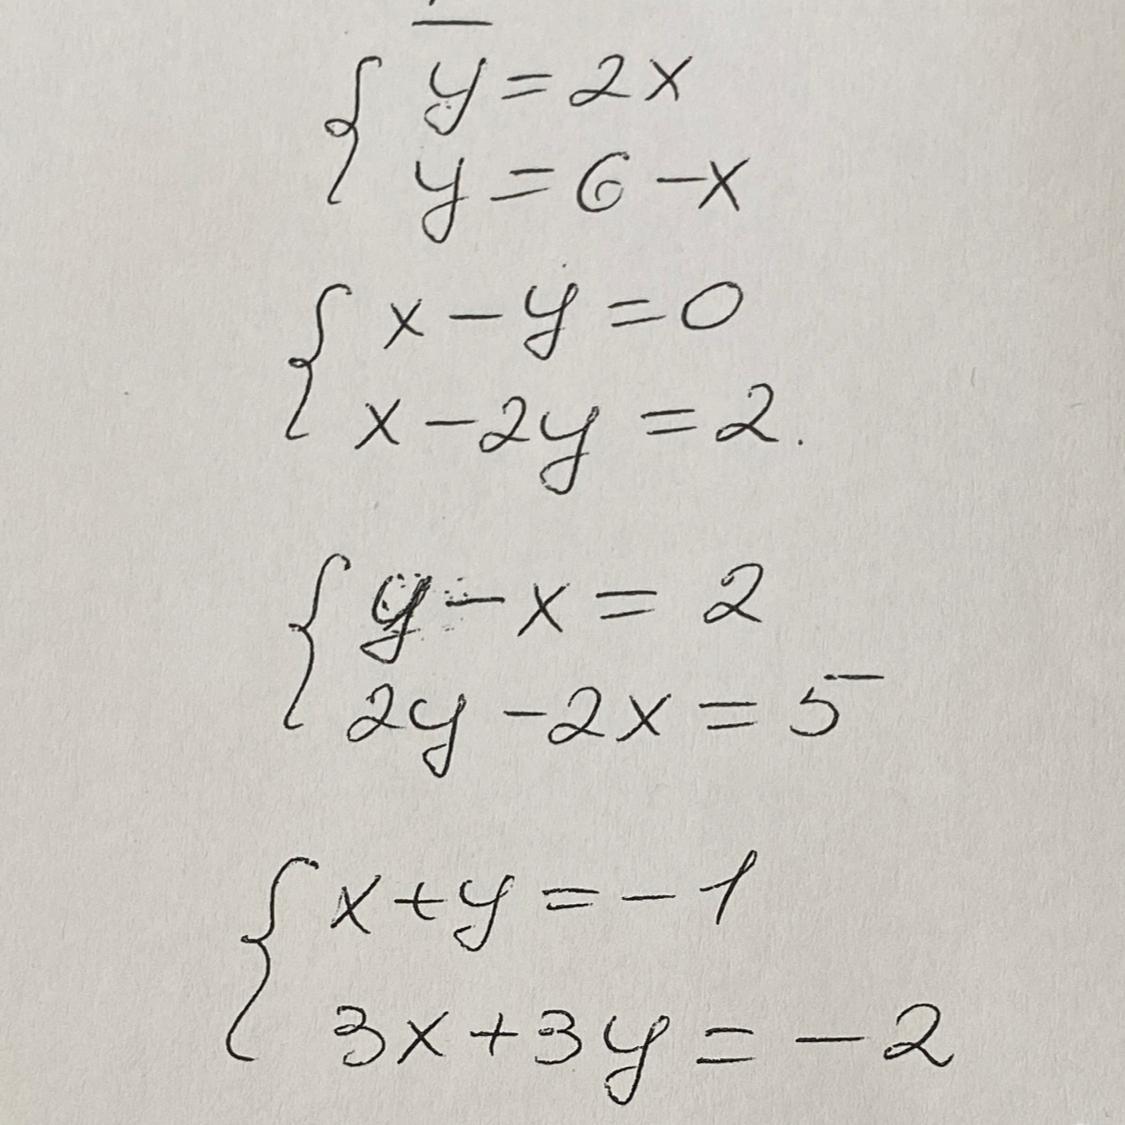 y = 2x
y = 6 - x
x - y = 0
x - 2y = 2.
y - x = 2
2y - 2x = 5
x + y = -1
3x + 3y = -2